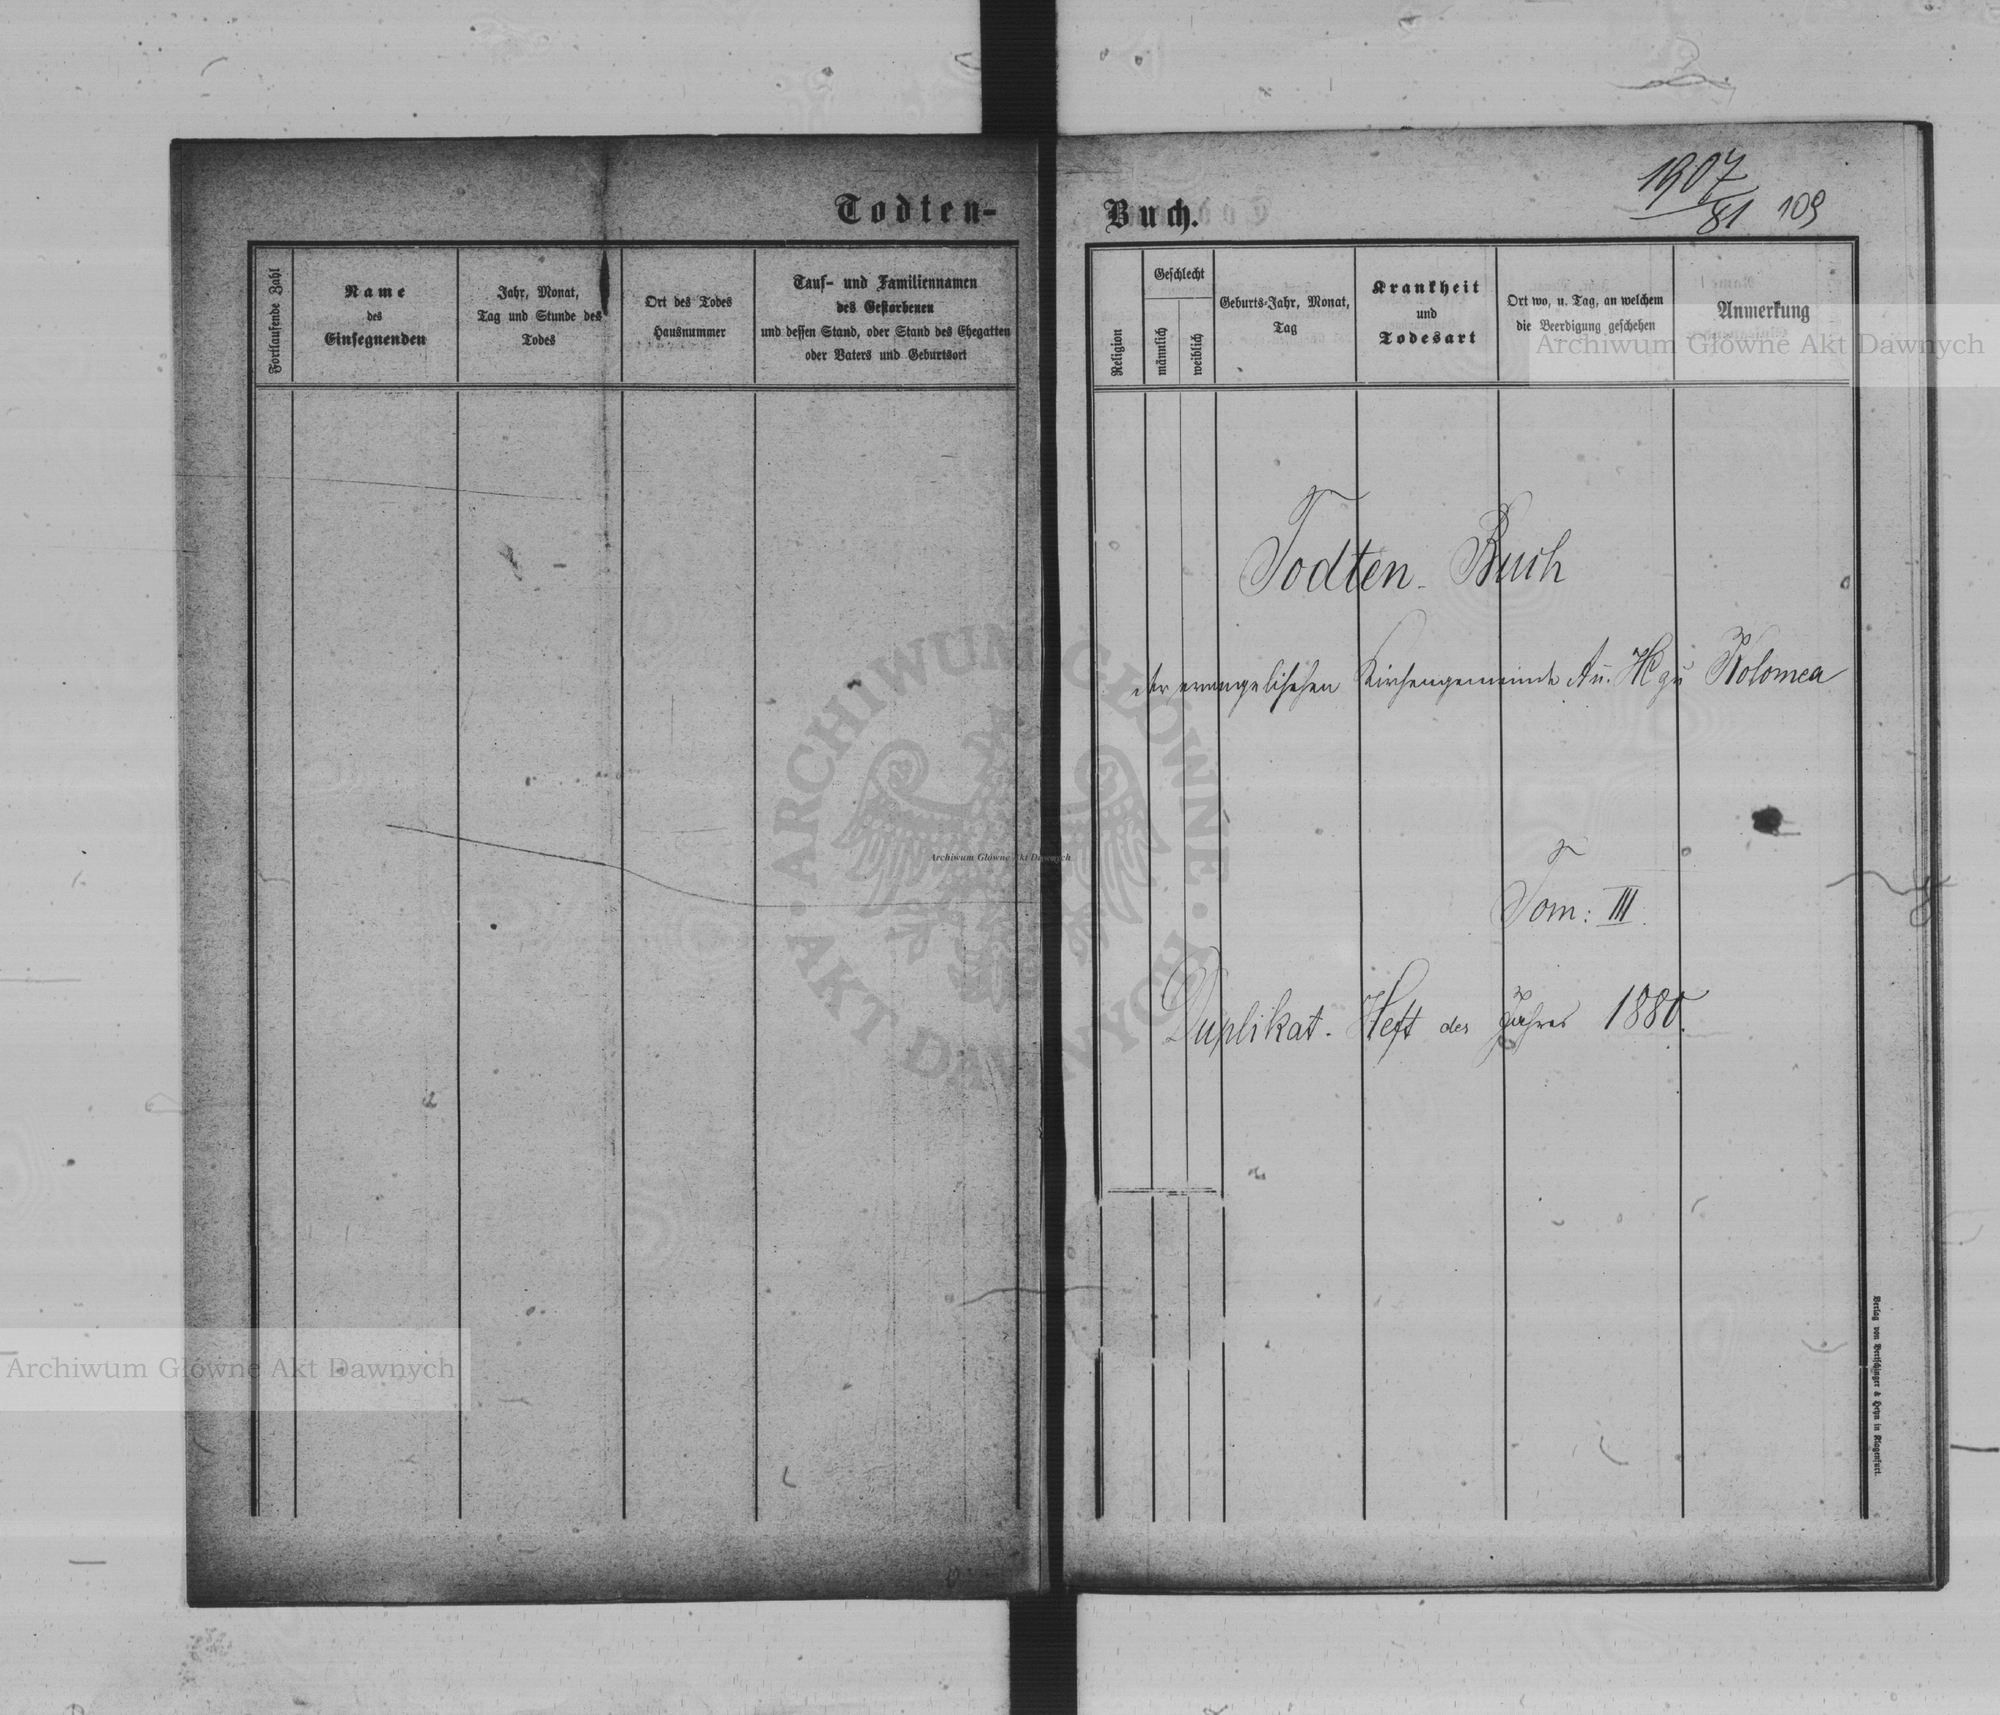 Todten-
Fortlaufende Zahl
Name
des
Einsegnenden
Jahr, Monat,
Tag und Stunde des
Todes
Ort des Todes
Hausnummer
Tauf- und Familiennamen
des Gestorbenen
und dessen Stand, oder Stand des Ehegatten
oder Vaters und Geburtsort
Buch.
1907
81
109
Religion
Geschlecht
männlich
weiblich
Geburts-Jahr, Monat,
Tag
Krankheit
und
Todesart
Ort wo, u. Tag, an welchem
die Beerdigung geschehen
Anmerkung
Archiwum Główne Akt Dawnych
Todten-Buch
der evangelischen Kirchengemeinde A u. H zu Kolomea
ARCHIWUM GŁÓWNE
AKT DAWNYCH
Archiwum Główne Akt Dawnych
Tom: III.
Duplikat-Heft des Jahres 1880.
Archiwum Główne Akt Dawnych
Verlag von Bertschinger & Heyn in Klagenfurt.